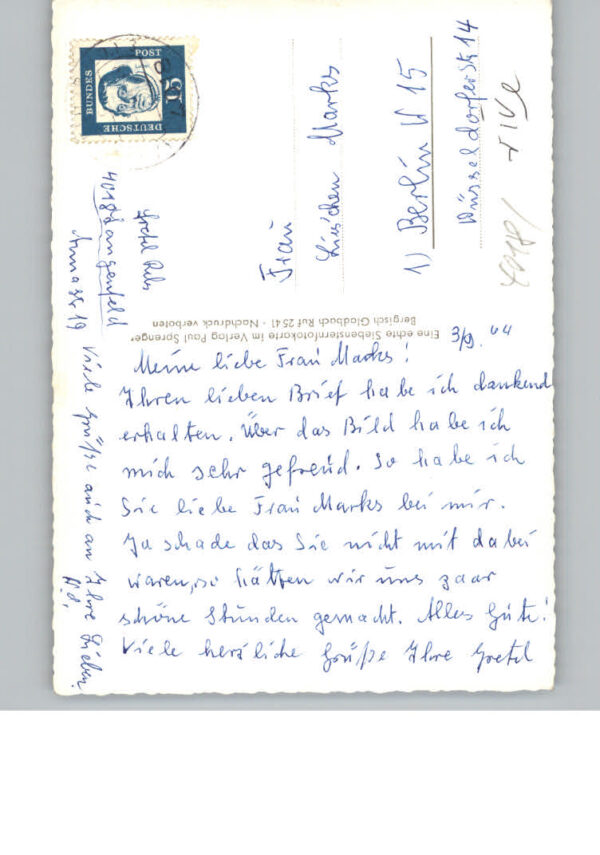 DEUTSCHE
BUNDES
POST
15
Frau
Lieschen Marks
1) Berlin W 15
Düsseldorferstr 14
Gretel
4018 Langenfeld
19
Eine echte Siebensternfotokarte im Verlag Paul Sprenger
Bergisch Gladbach Ruf 2541 · Nachdruck verboten
3/9.
Meine liebe Frau Marks!
Ihren lieben Brief habe ich dankend
erhalten. Über das Bild habe ich
mich sehr gefreud. So habe ich
Sie liebe Frau Marks bei mir.
Ja schade das Sie nicht mit dabei
waren, so hätten wir uns paar
schöne Stunden gemacht. Alles Gute!
Viele herzliche Grüße Ihre Gretel
Viele Grüße auch an Ihre Lieben